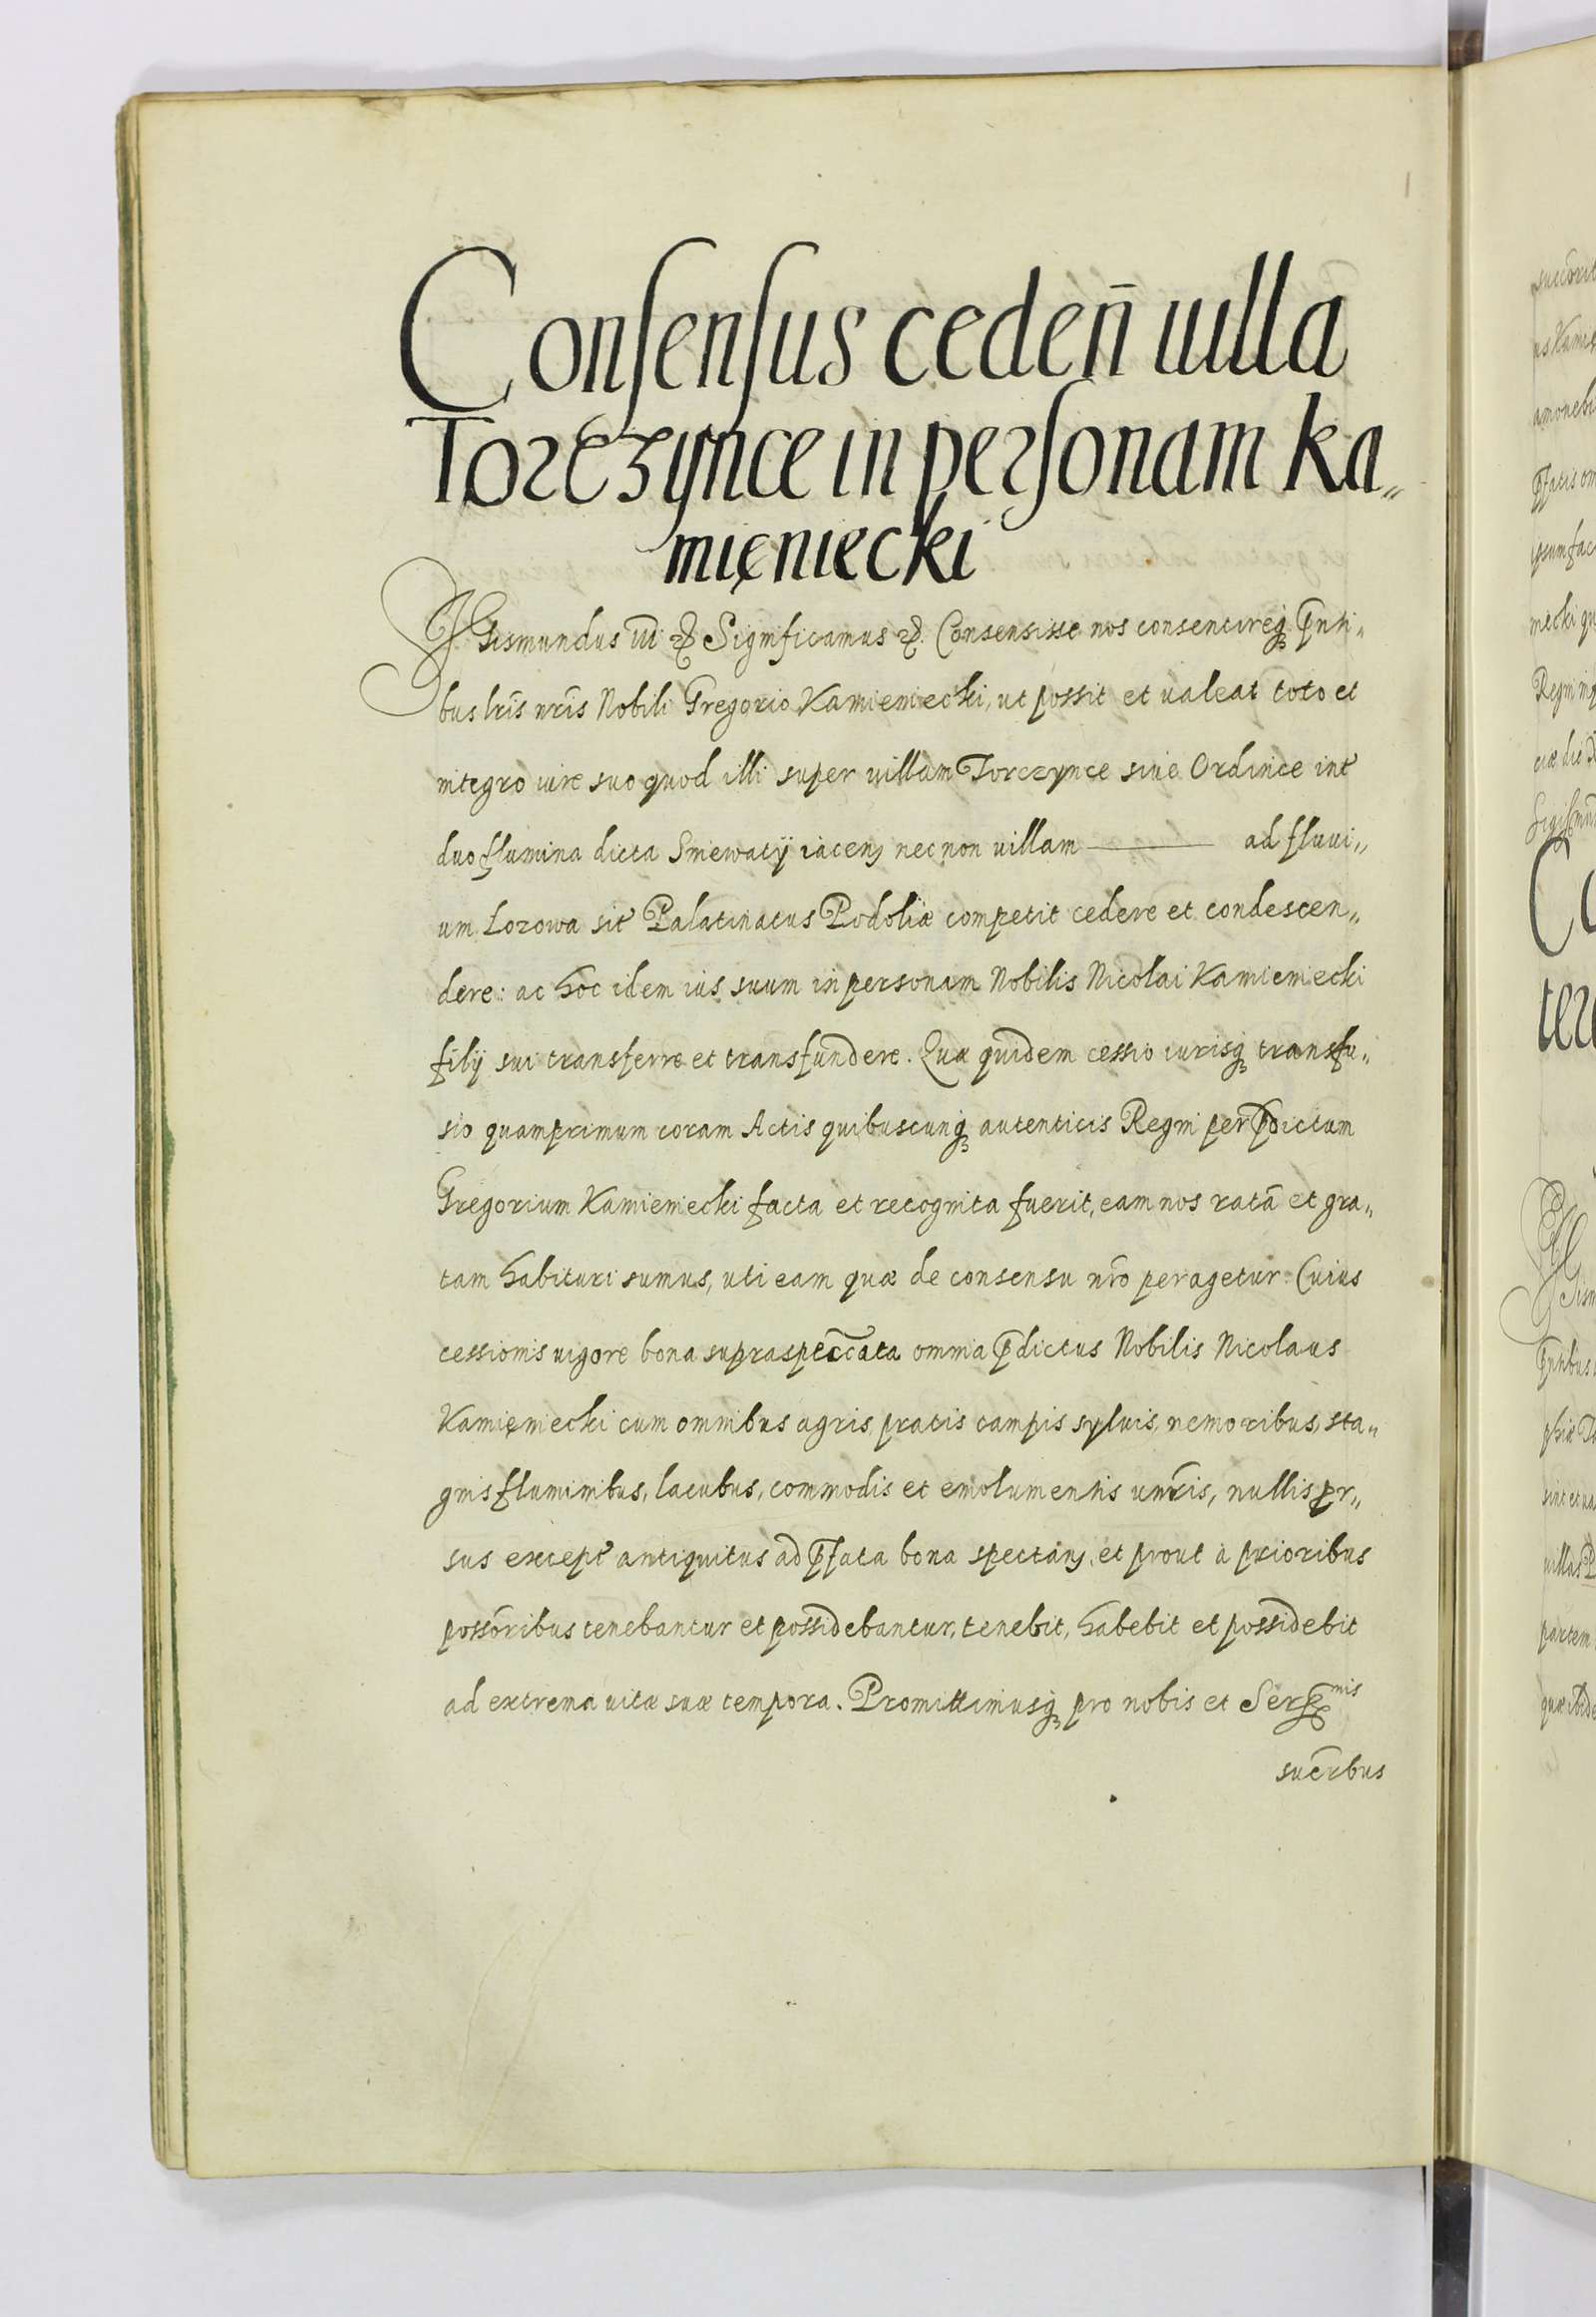 Consensus cedeñ uilla
Torczynce in personam Ka„
mięniecki
Sigismundus iii &c Significamus &c. Consensisse nos consentireq₃ p̄nti„
bus lr̄is nr̄is Nobili Gregorio Kamieniecki, ut possit et ualeat toto et
integro iure suo quod illi super uillam Torczynce siue Ordince int̄
duo flumina dicta Smewatÿ iacen₎ nec non uillam ——— ad fluui„
um Lozowa sit̄ Palatinatus Podoliæ competit cedere et condescen„
dere: ac hoc idem ius suum in personam Nobilis Nicolai Kamieniecki
filÿ sui transferre et transfundere. Quæ quidem cessio iurisq₃ transfu„
sio quamprimum coram Actis quibuscunq₃ autenticis Regni per p̄dictum
Gregorium Kamieniecki facta et recognita fuerit, eam nos ratā et gra„
tam habituri sumus, uti eam quæ de consensu nr̄o peragetur. Cuius
cessionis uigore bona supraspeccata omnia p̄dictus Nobilis Nicolaus
Kamięniecki cum omnibus agris, pratis campis syluis, nemoribus, sta„
gnis fluminibus, lacubus, commodis et emolumentis unīs, nullis pr„
sus except̄ antiquitus ad p̄fata bona spectan₎, et prout à prioribus
possōribus tenebantur et possidebantur, tenebit, habebit et possidebit
ad extrema uitæ suæ tempora. Promittimusq₃ pro nobis et Sermis
sucr̄bus